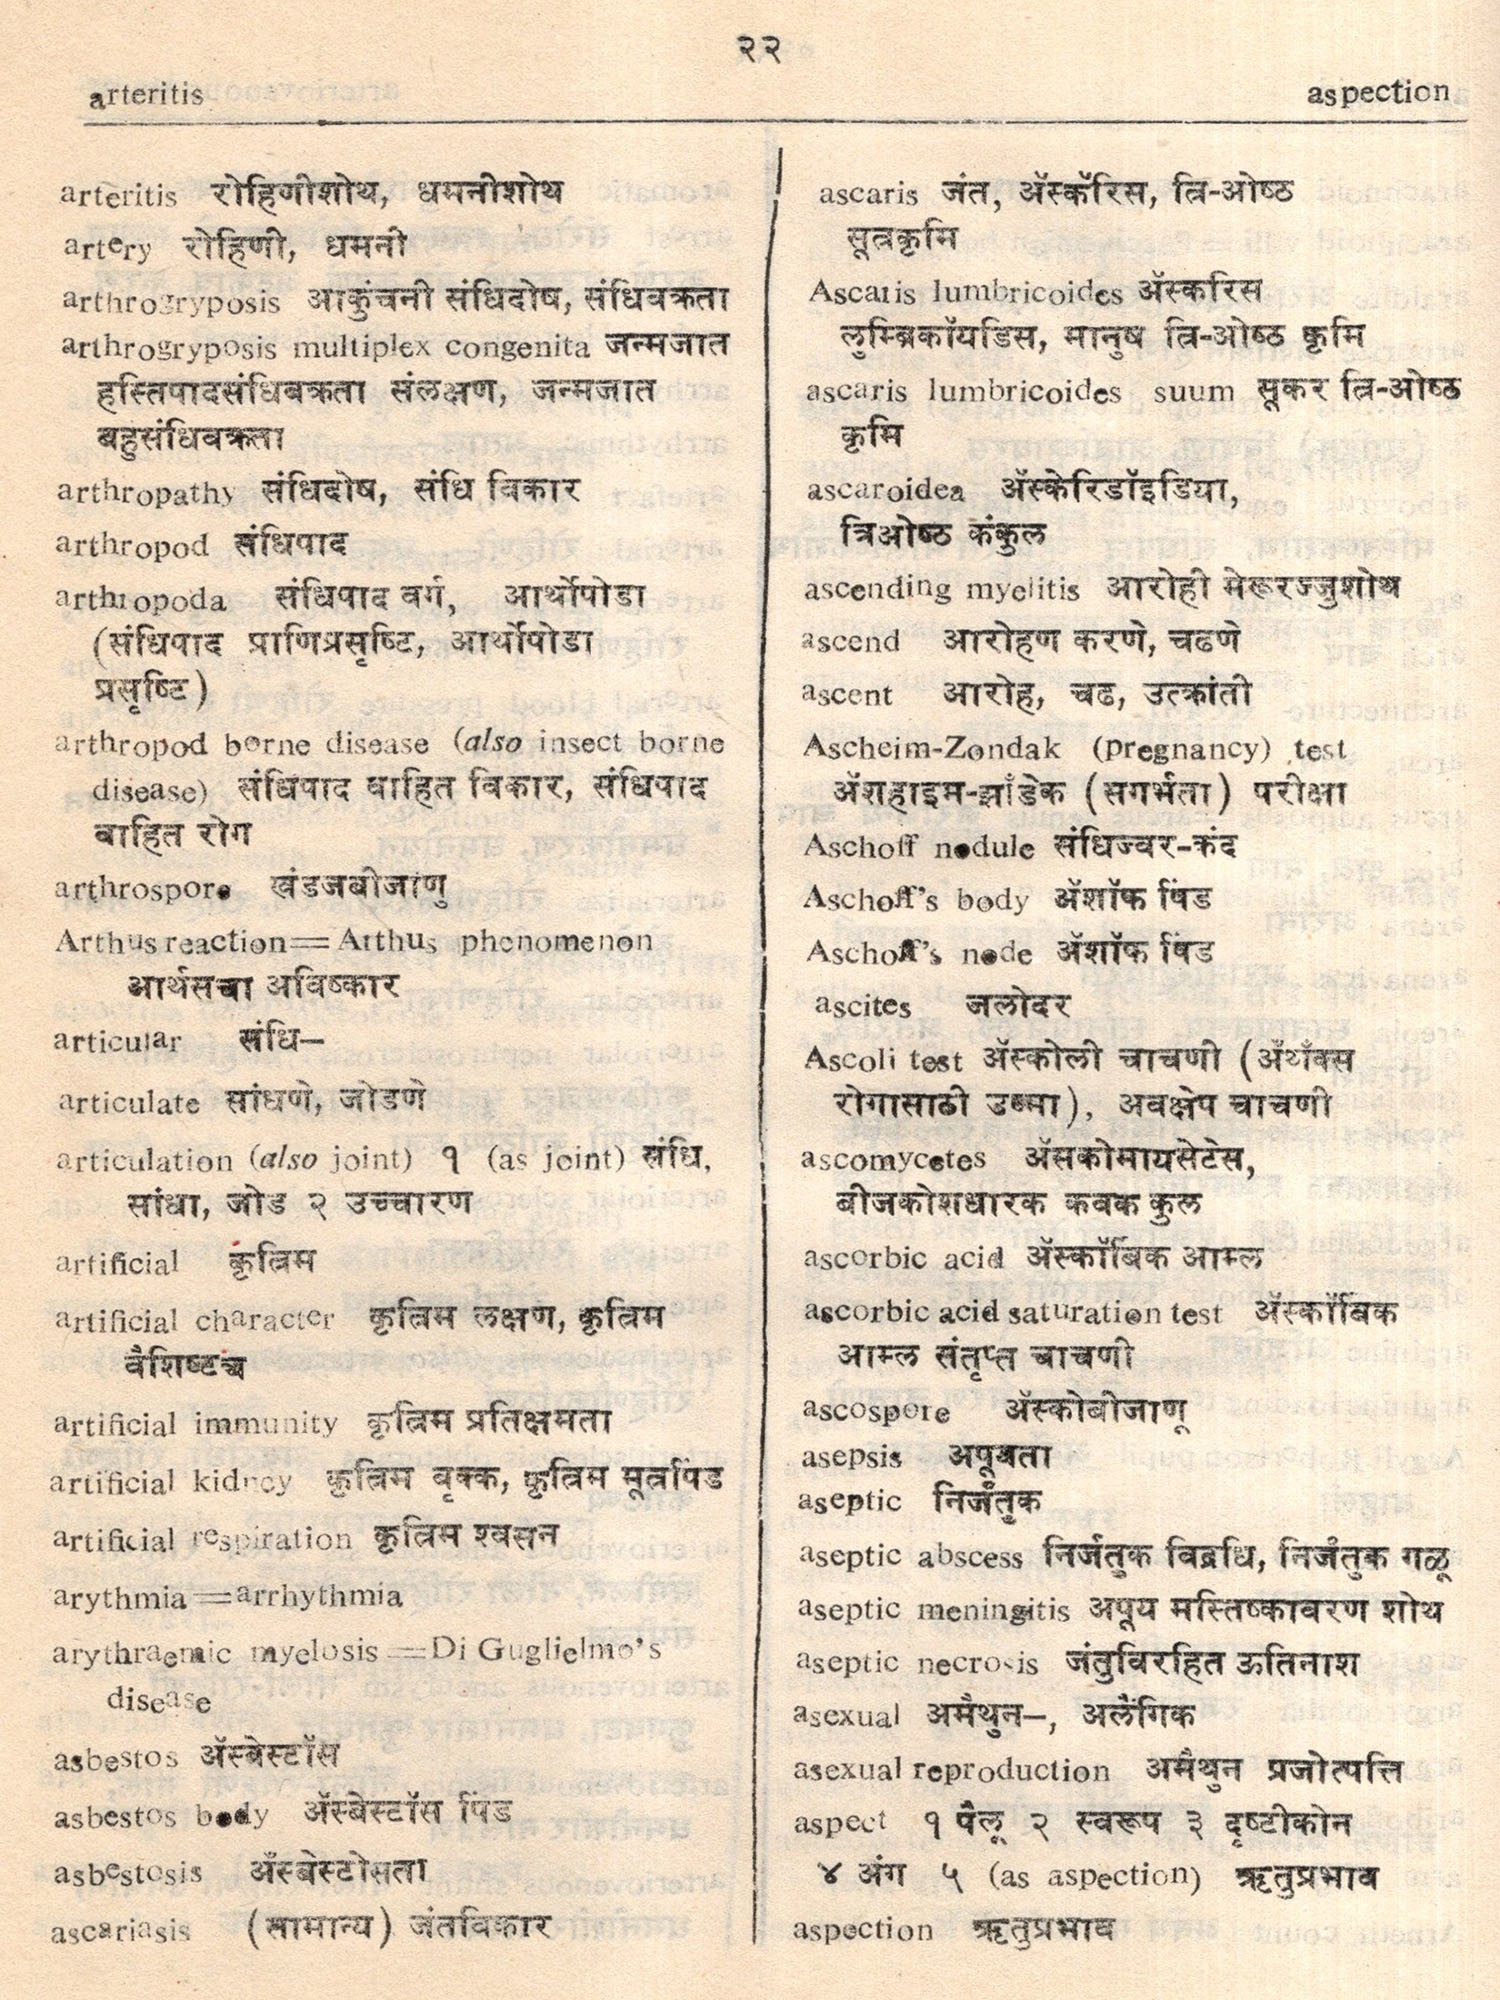 २२
arteritis
aspection
arteritis रोहिणीशोथ, धमनीशोथ
artery रोहिणी, धमनी
arthrogryposis आकुंचनी संधिदोष, संधिवक्रता
arthrogryposis multiplex congenita जन्मजात
हस्तिपादसंधिवक्रता संलक्षण, जन्मजात
बहुसंधिवक्रता
arthropathy संधिदोष, संधि विकार
arthropod संधिपाद
arthropoda संधिपाद वर्ग, आर्थोपोडा
(संधिपाद प्राणिप्रसृष्टि, आर्थोपोडा
प्रसृष्टि)
arthropod borne disease (also insect borne
disease) संधिपाद वाहित विकार, संधिपाद
वाहित रोग
arthrospore खंडजबीजाणु
Arthus reaction=Arthus phenomenon
आर्थसचा अविष्कार
articular संधि–
articulate सांधणे, जोडणे
articulation (also joint) १ (as joint) संधि,
सांधा, जोड २ उच्चारण
artificial कृत्रिम
artificial character कृत्रिम लक्षण, कृत्रिम
वैशिष्टय
artificial immunity कृत्रिम प्रतिक्षमता
artificial kidney कृत्रिम वृक्क, कृत्रिम मूत्रपिंड
artificial respiration कृत्रिम श्वसन
arythmia=arrhythmia
arythraemic myelosis=Di Guglielmo's
disease
asbestos ॲस्बेस्टॉस
asbestos body ॲस्बेस्टॉस पिंड
asbestosis ॲस्बेस्टोसता
ascariasis (सामान्य) जंतविकार
ascaris जंत, ॲस्कॅरिस, त्रि-ओष्ठ
सूत्रकृमि
Ascaris lumbricoides ॲस्करिस
लुम्ब्रिकॉयडिस, मानुष त्रि-ओष्ठ कृमि
ascaris lumbricoides suum सूकर त्रि-ओष्ठ
कृमि
ascaroidea ॲस्केरिडॉइडिया,
त्रिओष्ठ कंकुल
ascending myelitis आरोही मेरूरज्जुशोथ
ascend आरोहण करणे, चढणे
ascent आरोह, चढ, उत्क्रांती
Ascheim-Zondak (pregnancy) test
ॲशहाइम-झाँडेक (सगर्भता) परीक्षा
Aschoff nodule संधिज्वर-कंद
Aschoff's body ॲशॉफ पिंड
Aschoff's node ॲशॉफ पिंड
ascites जलोदर
Ascoli test ॲस्कोली चाचणी (ॲंथ्रॅक्स
रोगासाठी उष्मा), अवक्षेप चाचणी
ascomycetes ॲसकोमायसेटेस,
बीजकोशधारक कवक कुल
ascorbic acid ॲस्कॉर्बिक आम्ल
ascorbic acid saturation test ॲस्कॉर्बिक
आम्ल संतृप्त चाचणी
ascospore ॲस्कोबीजाणू
asepsis अपूयता
aseptic निर्जंतुक
aseptic abscess निर्जंतुक विद्रधि, निर्जंतुक गळू
aseptic meningitis अपूय मस्तिष्कावरण शोथ
aseptic necrosis जंतुविरहित ऊतिनाश
asexual अमैथुन–, अलैंगिक
asexual reproduction अमैथुन प्रजोत्पत्ति
aspect १ पैलू २ स्वरूप ३ दृष्टीकोन
४ अंग ५ (as aspection) ऋतुप्रभाव
aspection ऋतुप्रभाव